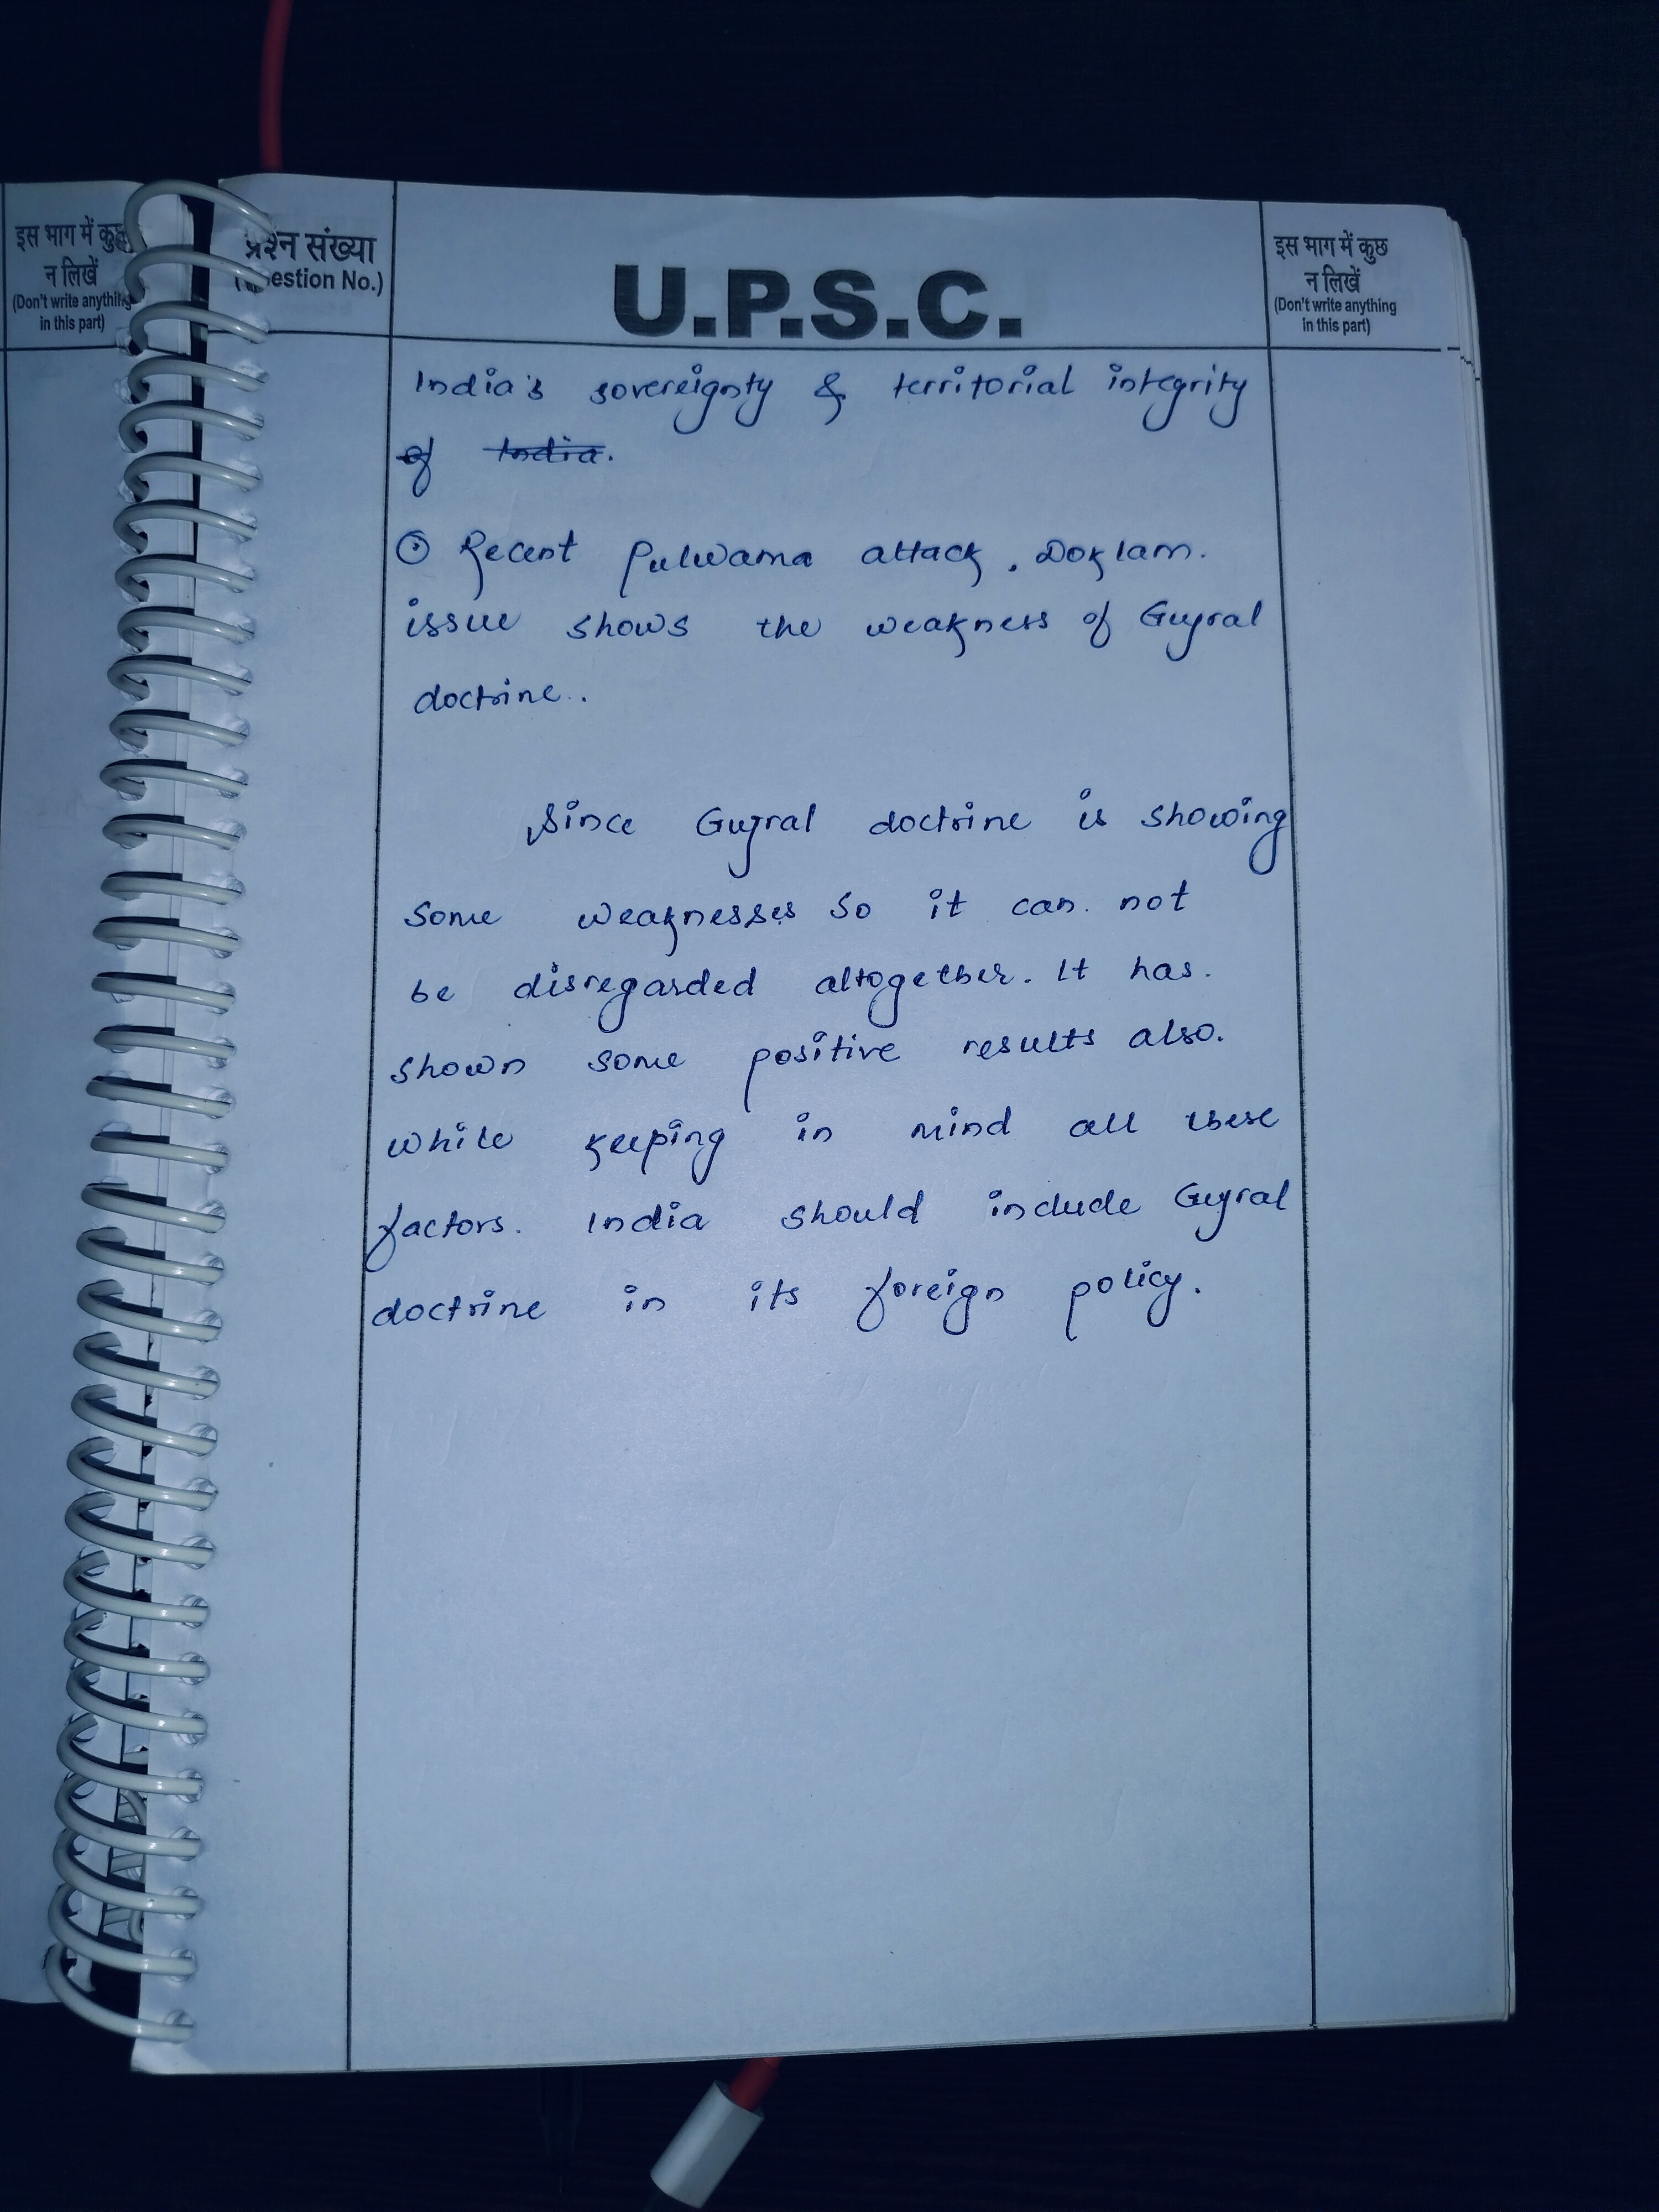 इस भाग में कुछ
न लिखें
(Don't write anything
in this part)
प्रश्न संख्या
(Question No.)
U.P.S.C.
इस भाग में कुछ
न लिखें
(Don't write anything
in this part)
India's sovereignty & territorial integrity
of India.
⊙ Recent Pulwama attack, Doklam.
issue shows the weakness of Gujral
doctrine..
Since Gujral doctrine is showing
some weaknesses so it can not
be disregarded altogether. It has.
shown some positive results also.
while keeping in mind all these
factors. India should include Gujral
doctrine in its foreign policy.